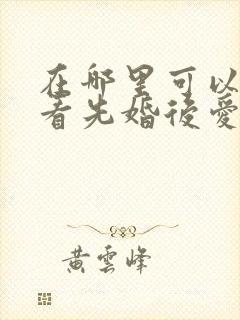 在哪里可以
看先婚後愛
黄雲峰